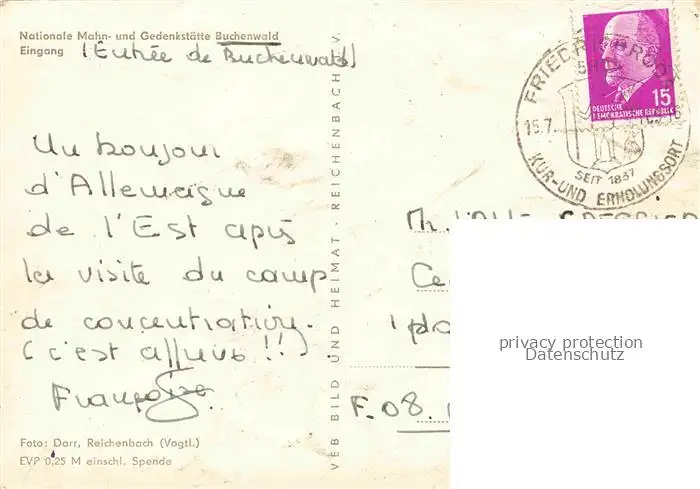 Nationale Mahn- und Gedenkstätte Buchenwald
Eingang (Entrée de Buchenwald)
Un bonjour
d'Allemagne
de l'Est après
la visite du camp
de concentration.
(c'est affreux !!)
Françoise
Foto: Darr, Reichenbach (Vogtl.)
EVP 0,25 M einschl. Spende
VEB BILD UND HEIMAT · REICHENBACH i. V.
FRIEDRICHRODA
15.7.
SEIT 1837
KUR- UND ERHOLUNGSORT
15
DEUTSCHE
DEMOKRATISCHE REPUBLIK
F. 08.
privacy protection
Datenschutz